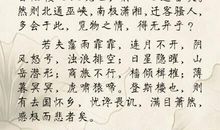 然则北通巫峡，南极潇湘，迁客骚人，
多会于此，览物之情，得无异乎？
若夫霪雨霏霏，连月不开，阴
风怒号，浊浪排空；日星隐曜，山
岳潜形；商旅不行，樯倾楫摧；薄
暮冥冥，虎啸猿啼。登斯楼也，则
有去国怀乡，忧谗畏讥，满目萧然，
感极而悲者矣。